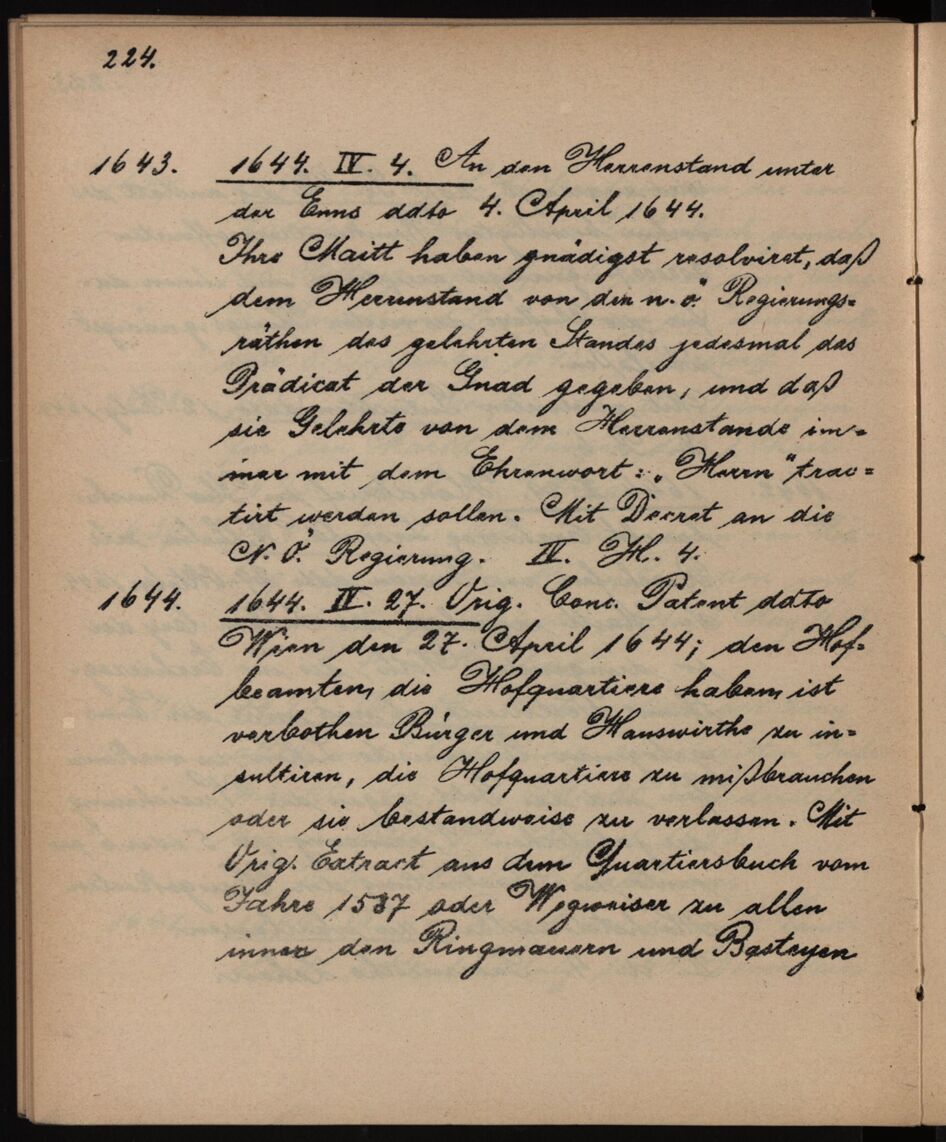 224.
1643. 1644. IV. 4. An den Herrenstand unter
der Enns ddto 4. April 1644.
Ihre Maitt haben gnädigst resolviret, daß
dem Herrenstand von den n. ö. Regierungs=
räthen des gelehrten Standes jedesmal das
Prädicat der Gnad gegeben, und daß
sie Gelehrte von dem Herrenstande im=
mer mit dem Ehrenwort: „Herrn" trac=
tirt werden sollen. Mit Decret an die
N. Ö. Regierung. IV. H. 4.
1644. 1644. IV. 27. Orig. Conc. Patent ddto
Wien den 27. April 1644; den Hof=
beamten, die Hofquartiere haben, ist
verbothen Bürger und Hauswirthe zu in=
sultiren, die Hofquartiere zu mißbrauchen
oder sie bestandweise zu verlassen. Mit
Orig. Extract aus dem Quartiersbuch vom
Jahre 1587 oder Wegweiser zu allen
inner den Ringmauern und Basteyen